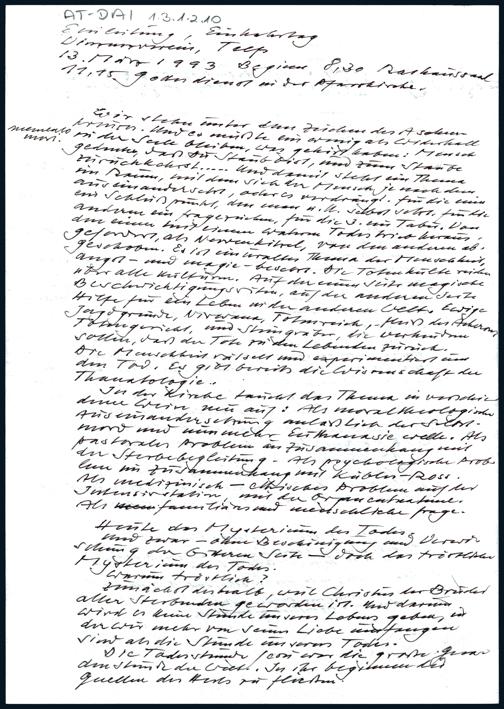 AT-DAI 13.1.2.10
Einleitung, Einkehrtag
Vinzenzverein, Telfs
13. März 1993 Beginn 8,30 Rathaussaal
11,15 Gottesdienst in der Pfarrkirche.
memento mori!
Wir stehn unter dem Zeichen des Aschen-
kreuzes. Und es müßte ein wenig als Widerhall
in der Seele bleiben, was es geheißen: Mensch
gedenke, daß Du Staub bist, und zum Staube
zurückkehrst..... Und damit steht ein Thema
im Raum, mit dem sich der Mensch je nachdem
auseinandersetzt, oder es verdrängt. Für die einen
ein Schlußpunkt, den man u. U. selbst setzt, für die
anderen ein Fragezeichen, für die 3. ein Tabu. Von
den einen mit einem wahren Todestrieb heraus-
gefordert, als Nervenkitzel, von den anderen ab-
geschoben. Es ist ein uraltes Thema der Menschheit,
angst- und magie-besetzt. Die Totenkulte reichen
über alle Kulturen. Auf der einen Seite magische
Beschwichtigungsriten, auf der anderen Seite
Hilfe für ein Leben in der anderen Welt. Ewige
Jagdgründe, Nirwana, Totenreich, Fluß des Acheron
Totengericht, und Steingräber, die verhindern
sollen, daß der Tote zu den Lebenden zurück.
Die Menschheit rätselt und experimentiert um
den Tod. Es gibt bereits die Wissenschaft der
Thanatologie.
In der Kirche taucht das Thema in verschie-
dener Weise neu auf: Als moraltheologische
Auseinandersetzung anläßlich der Selbst-
mord und nunmehr Euthanasiewelle. Als
pastorales Problem im Zusammenhang mit
der Sterbebegleitung. Als psychologisches Prob-
lem im Zusammenhang mit Kübler-Ross.
Als medizinisch-ethisches Problem auf der
Intensivstation mit der Organentnahme.
Als familiäre und menschliche Frage.
Heute das Mysterium des Todes
Und zwar - ohne Beschönigung und Verwi-
schung der bitteren Seite - doch das tröstliche
Mysterium des Todes.
Warum tröstlich?
Zunächst deshalb, weil Christus der Bruder
aller Sterbenden geworden ist. Und darum
wird es keine Stunde unseres Lebens geben, in
der wir mehr von seiner Liebe umfangen
sind als die Stunde unseres Todes.
Die Todesstunde Jesu war die große
Stunde der Welt. In ihr beginnen die
Quellen des Heils zu fließen.